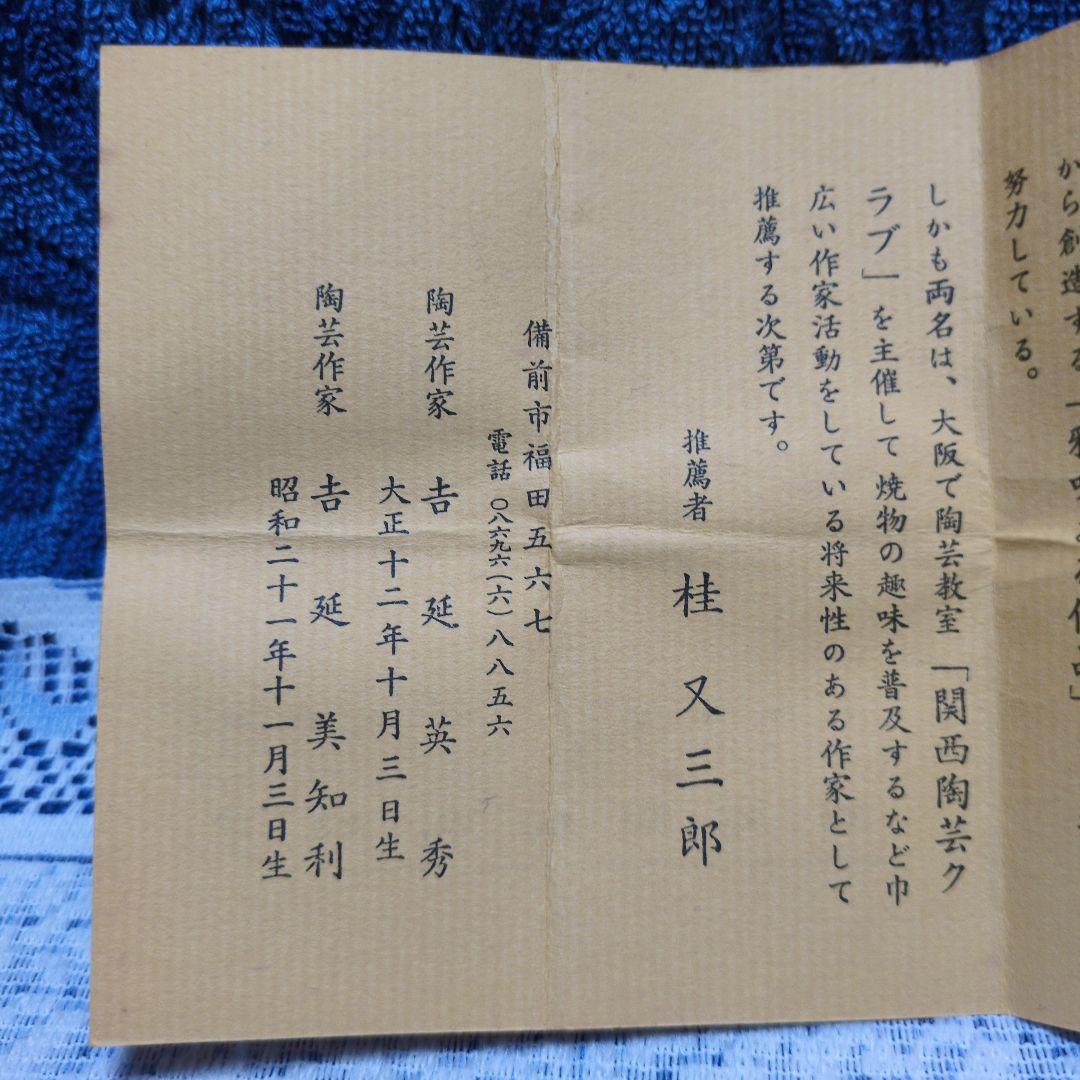 から創造する「
努力している。
しかも両名は、大阪で陶芸教室「関西陶芸ク
ラブ」を主催して焼物の趣味を普及するなど巾
広い作家活動をしている将来性のある作家として
推薦する次第です。
推薦者 桂又三郎
備前市福田五六七
電話 〇八六九六(六)八八五六
陶芸作家 吉延英秀
大正十二年十月三日生
陶芸作家 吉延美知利
昭和二十一年十一月三日生